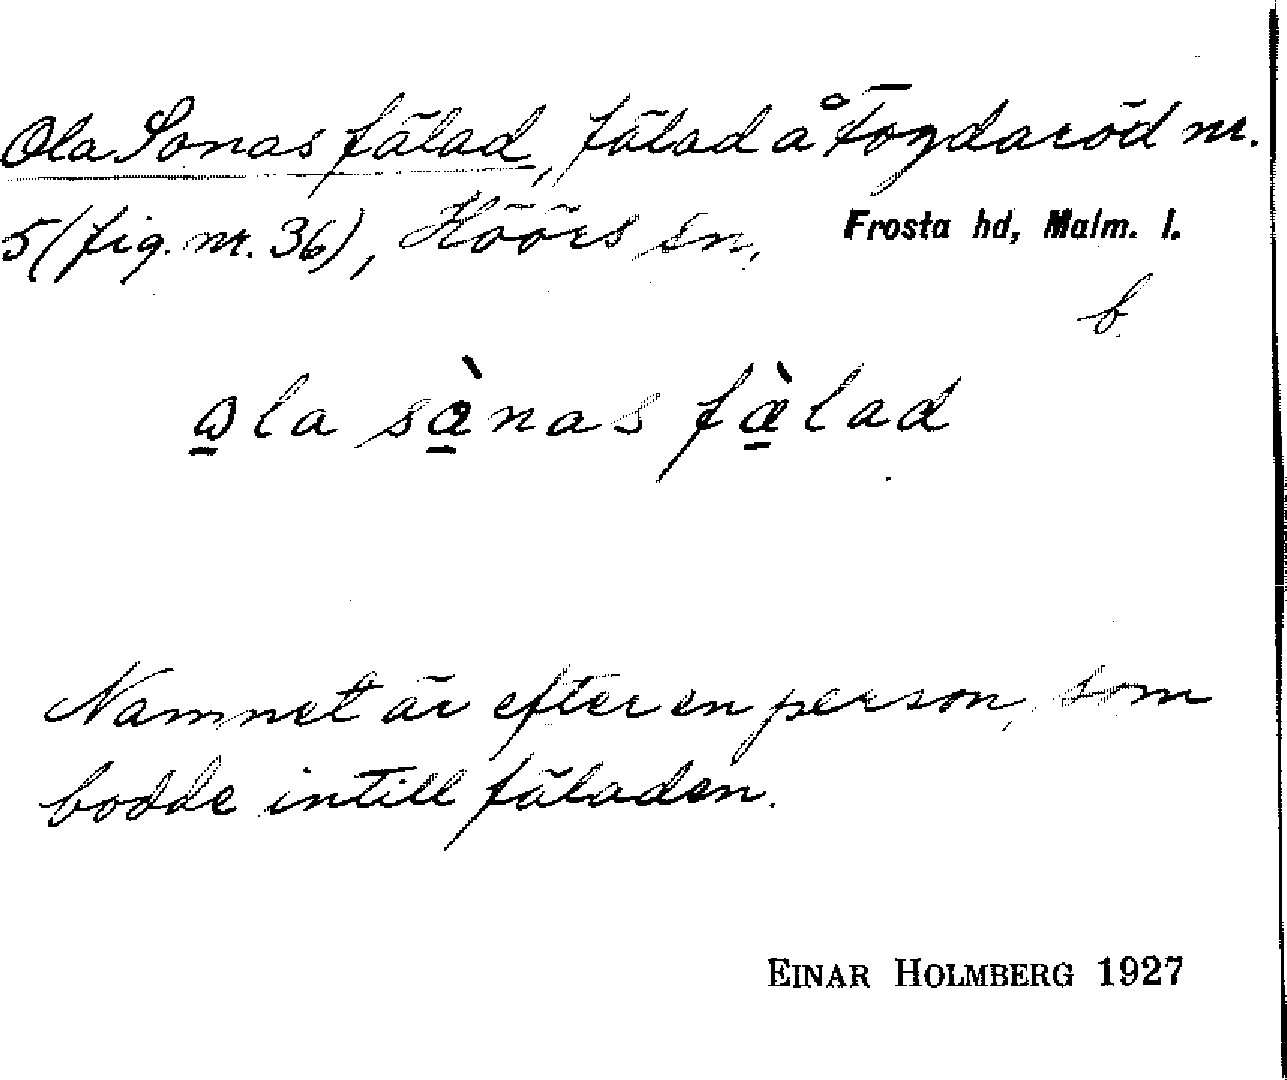 Ola Sonas fälad, fälad å Fogdaröd nr.
5 (fig. nr. 36), Höörs sn, Frosta hd, Malm. l.
b
ola sònas fæ̀lad
Namnet är efter en person, som
bodde intill fäladen.
EINAR HOLMBERG 1927